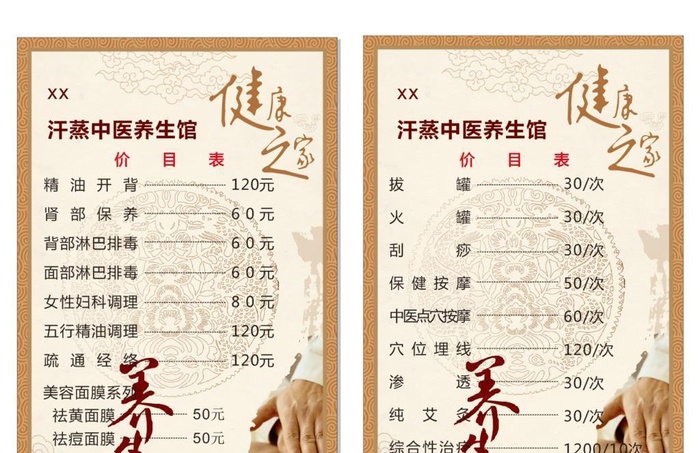 xx
健康之家
汗蒸中医养生馆
价 目 表
精油开背 120元
肾部保养 60元
背部淋巴排毒 60元
面部淋巴排毒 60元
女性妇科调理 80元
五行精油调理 120元
疏通经络 120元
美容面膜系列
祛黄面膜 50元
祛痘面膜 50元
养生
xx
健康之家
汗蒸中医养生馆
价 目 表
拔 罐 30/次
火 罐 30/次
刮 痧 30/次
保健按摩 50/次
中医点穴按摩 60/次
穴位埋线 120/次
渗 透 30/次
纯艾灸 30/次
综合性治疗 1200/10次
养生